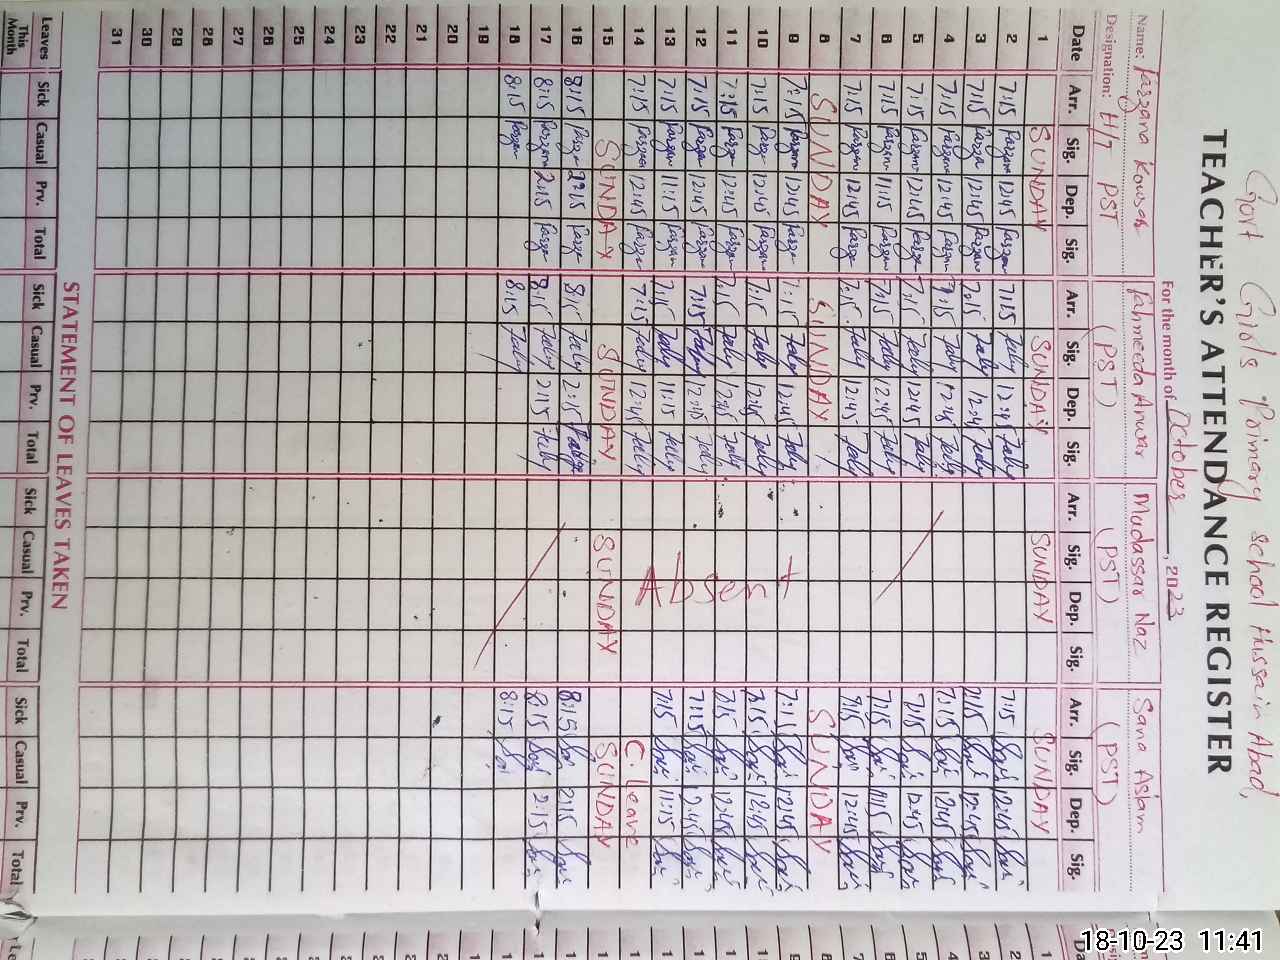 Govt Girls Primary school Hussain Abad,
TEACHER'S ATTENDANCE REGISTER
For the month of October, 2023
Name: Farzana Kowsar Fahmeeda Anwar Mudassar Naz Sana Aslam
Designation: H/T PST (PST) (PST) (PST)
Date Arr. Sig. Dep. Sig. Arr. Sig. Dep. Sig. Arr. Sig. Dep. Sig. Arr. Sig. Dep. Sig.
1 SUNDAY SUNDAY SUNDAY SUNDAY
2 7:15 Farzana 12:45 Farzana 7:15 12:45 7:15 12:45
3 7:15 Farzana 12:45 Farzana 7:15 12:45 7:15 12:45
4 7:15 Farzana 12:45 Farzana 7:15 12:45 7:15 12:45
5 7:15 Farzana 12:45 Farzana 7:15 12:45 7:15 12:45
6 7:15 Farzana 11:15 Farzana 7:15 12:45 7:15 11:15
7 7:15 Farzana 12:45 Farzana 7:15 12:45 7:15 12:45
8 SUNDAY SUNDAY SUNDAY
9 7:15 Farzana 12:45 Farzana 7:15 12:45 7:15 12:45
10 7:15 Farzana 12:45 Farzana 7:15 12:45 7:15 12:45
11 7:15 Farzana 12:45 Farzana 7:15 12:45 7:15 12:45
12 7:15 Farzana 12:45 Farzana 7:15 12:45 7:15 12:45
13 7:15 Farzana 11:15 Farzana 7:15 11:15 7:15 11:15
14 7:15 Farzana 12:45 Farzana 7:15 12:45 C. Leave
Absent
15 SUNDAY SUNDAY SUNDAY SUNDAY
16 8:15 Farzana 2:15 Farzana 8:15 2:15 8:15 2:15
17 8:15 Farzana 2:15 Farzana 8:15 2:15 8:15 2:15
18 8:15 Farzana 8:15 8:15
19
20
21
22
23
24
25
26
27
28
29
30
31
STATEMENT OF LEAVES TAKEN
Leaves Sick Casual Prv. Total Sick Casual Prv. Total Sick Casual Prv. Total Sick Casual Prv. Total
This Month
18-10-23 11:41